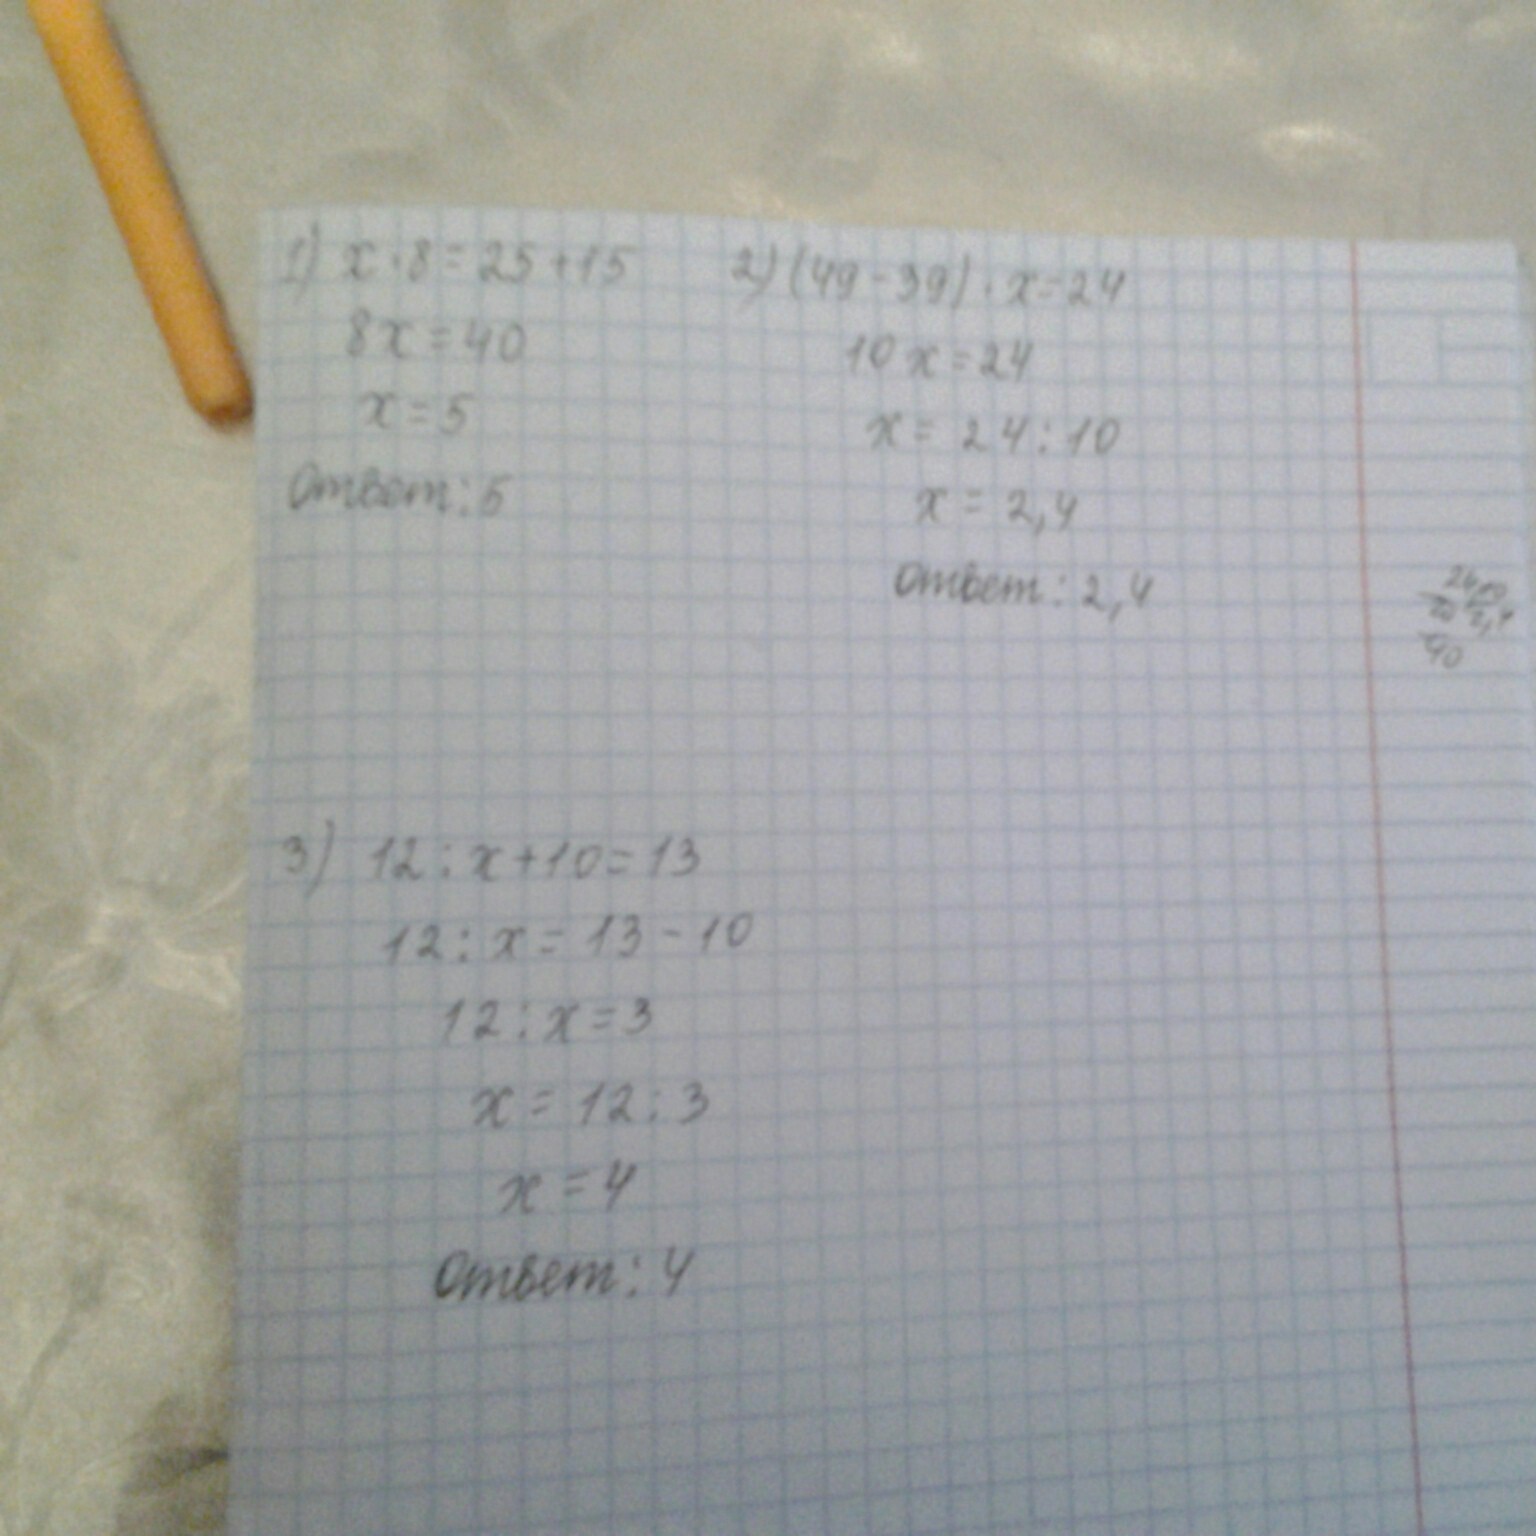 1) x·8=25+15
8x=40
x=5
Ответ: 5
2) (49-39)·x=24
10x=24
x=24:10
x=2,4
Ответ: 2,4
3) 12:x+10=13
12:x=13-10
12:x=3
x=12:3
x=4
Ответ: 4